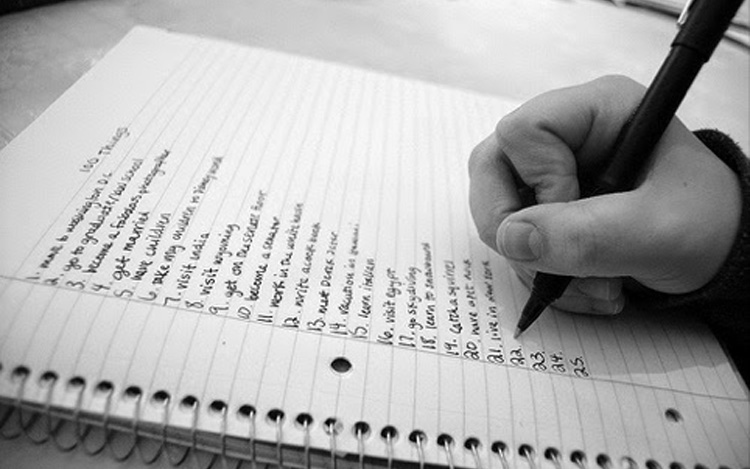 100 Things
1. move to washington D.C
2. go to graduate/law school
3. become a fabulous photographer
4. get married
5. have children
6. take my children to disney world
7. visit india
8. visit wyoming
9. get on the senate floor
10. become a senator
11. work in the white house
12. write a cook book
13. meet Derek Jeter
14. vacation in hawaii
15. learn italian
16. visit egypt
17. go skydiving
18. learn to snowboard
19. catch a squirrel
20. have a pet
21. live in new york
22.
23.
24.
25.